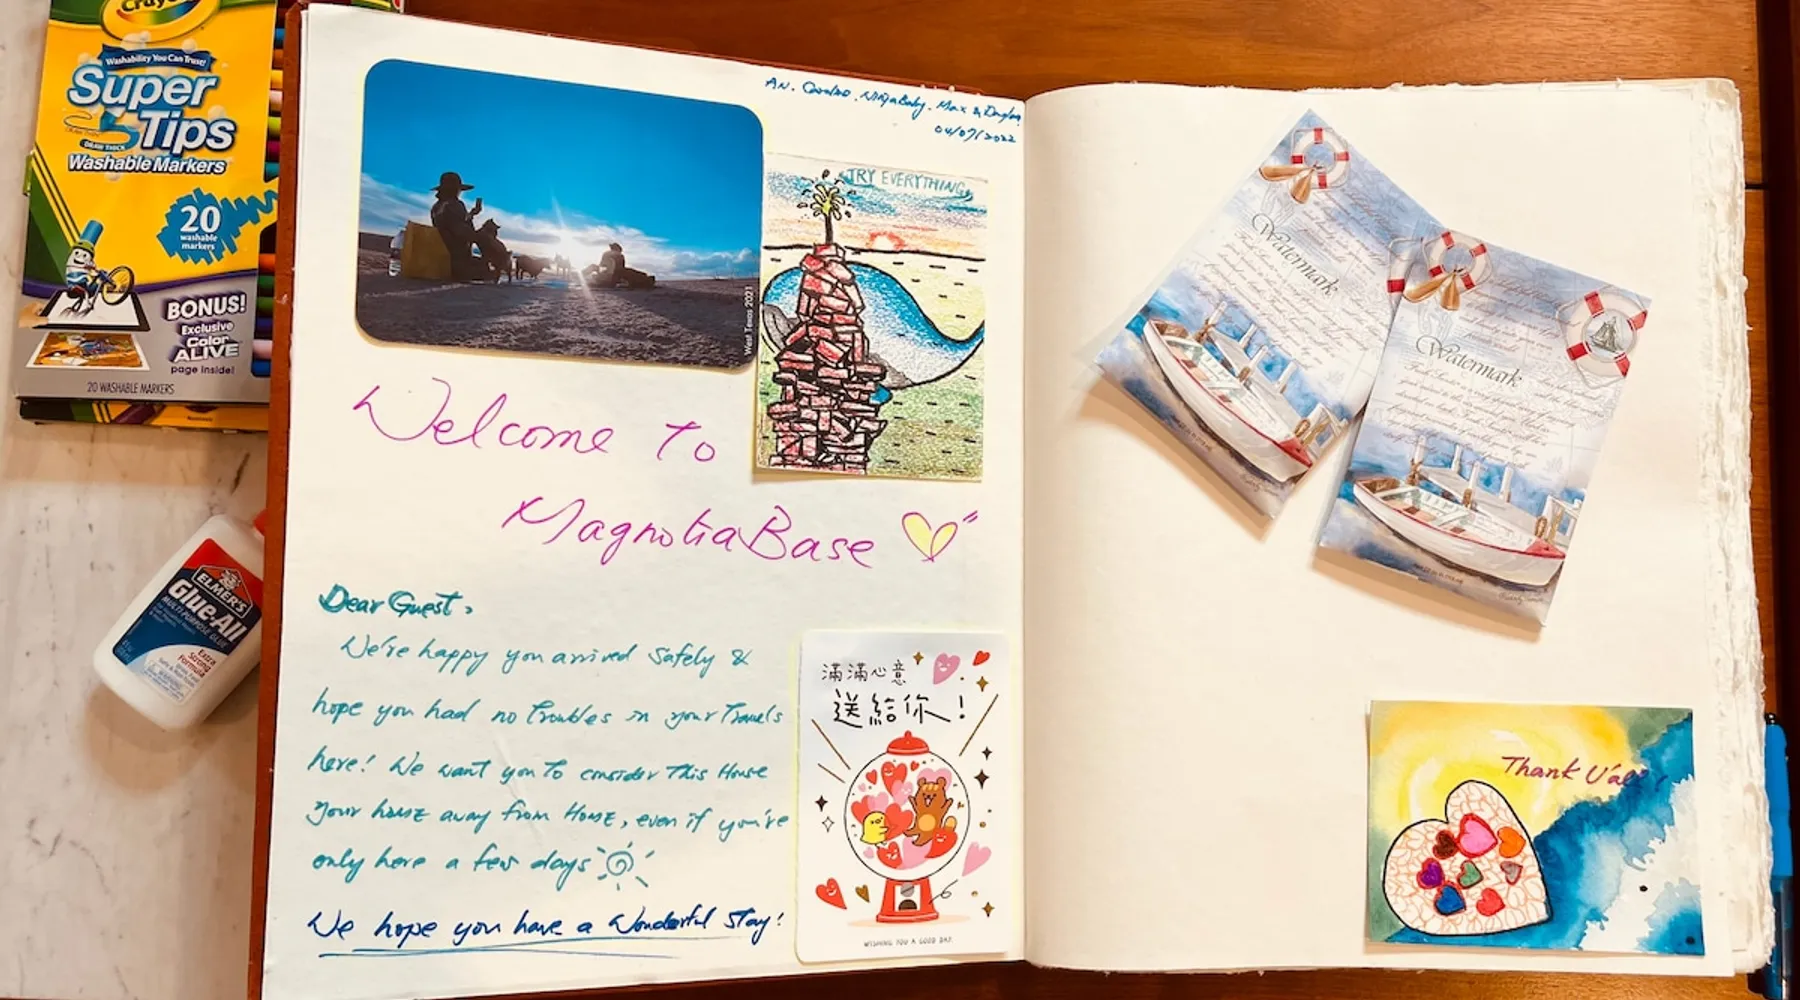 Crayola
Washability You Can Trust!
Super
Tips
DRAW THICK
Washable Markers
20
washable
markers
BONUS!
Exclusive
Color
ALIVE
page inside!
20 WASHABLE MARKERS
ELMER'S
Glue-All
MULTI-PURPOSE GLUE
Extra
Strong
Formula
West Texas 2021
AN. NinjaBaby. Max &
04/07/2022
TRY EVERYTHING
Welcome To
MagnoliaBase
Dear Guest,
We're happy you arrived safely &
hope you had no troubles in your travels
here! We want you to consider this House
your home away from Home, even if you're
only here a few days
We hope you have a Wonderful stay!
滿滿心意
送給你!
WISHING YOU A GOOD DAY.
Watermark
Watermark
Thank U'all